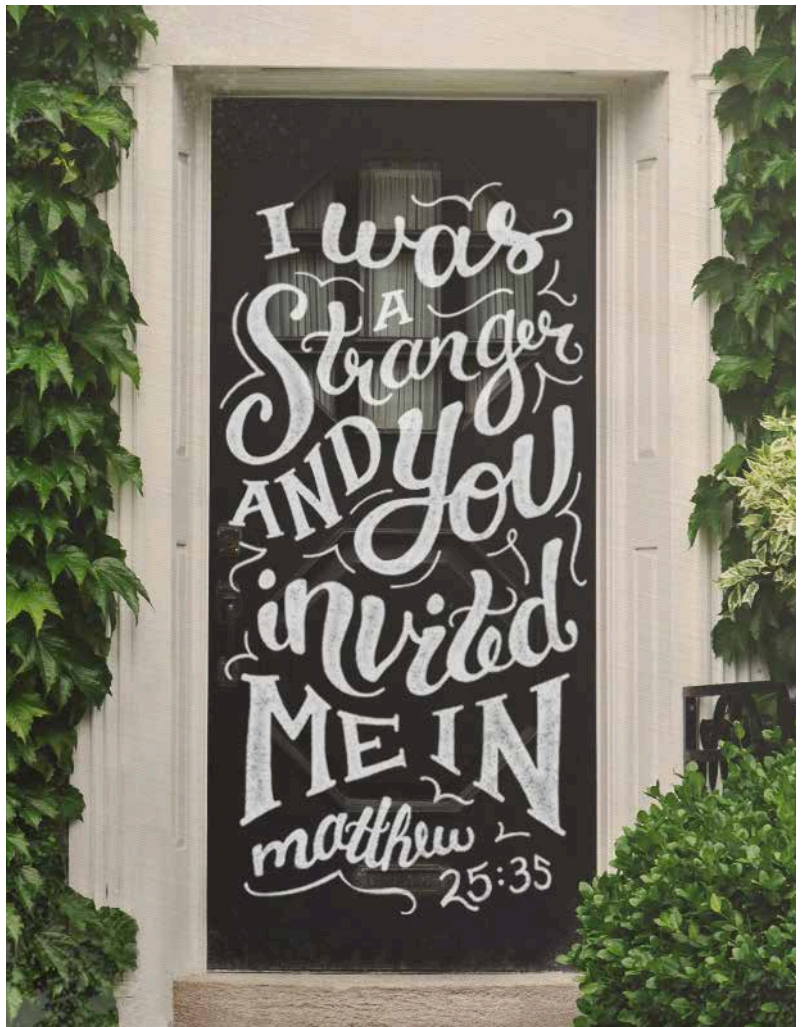 I was
A
Stranger
AND You
invited
ME IN
matthew
25:35